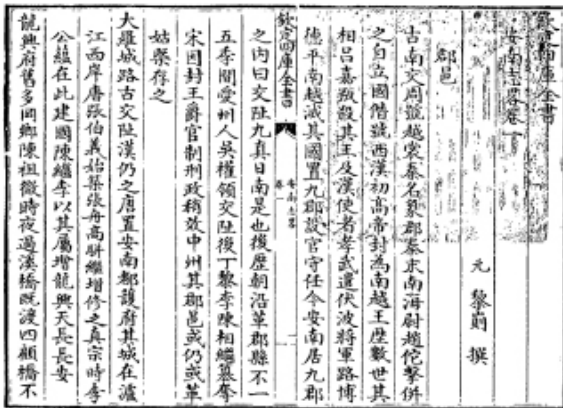 欽定四庫全書
安南志畧卷一
元 黎崱 撰
郡邑
古南交周號越裳秦名象郡秦末南海尉趙佗擊併
之自立國僭號西漢初高帝封為南越王歷數世其
相呂嘉叛殺其王及漢使者孝武遣伏波將軍路博
德平南越滅其國置九郡設官守任今安南居九郡
欽定四庫全書
安南志畧
卷一
之內曰交阯九真日南是也後歷朝沿革郡縣不一
五季間愛州人吳權領交阯後丁黎李陳相繼簒奪
宋因封王爵官制刑政稍效中州其郡邑或仍或革
姑槩存之
大羅城路古交阯漢仍之唐置安南都護府其城在瀘
江西岸唐張伯義始築張舟高駢繼增修之真宗時李
公蘊在此建國陳繼李以其屬增龍興天長長安
龍興府舊多岡鄉陳祖微時夜過溪橋既渡四顧橋不